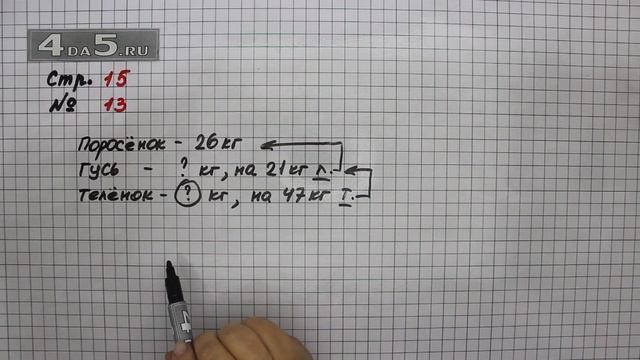 4DA5.RU
Стр. 15
№ 13
Поросёнок - 26 кг
Гусь - ? кг, на 21 кг л.
Телёнок - ? кг, на 47 кг т.